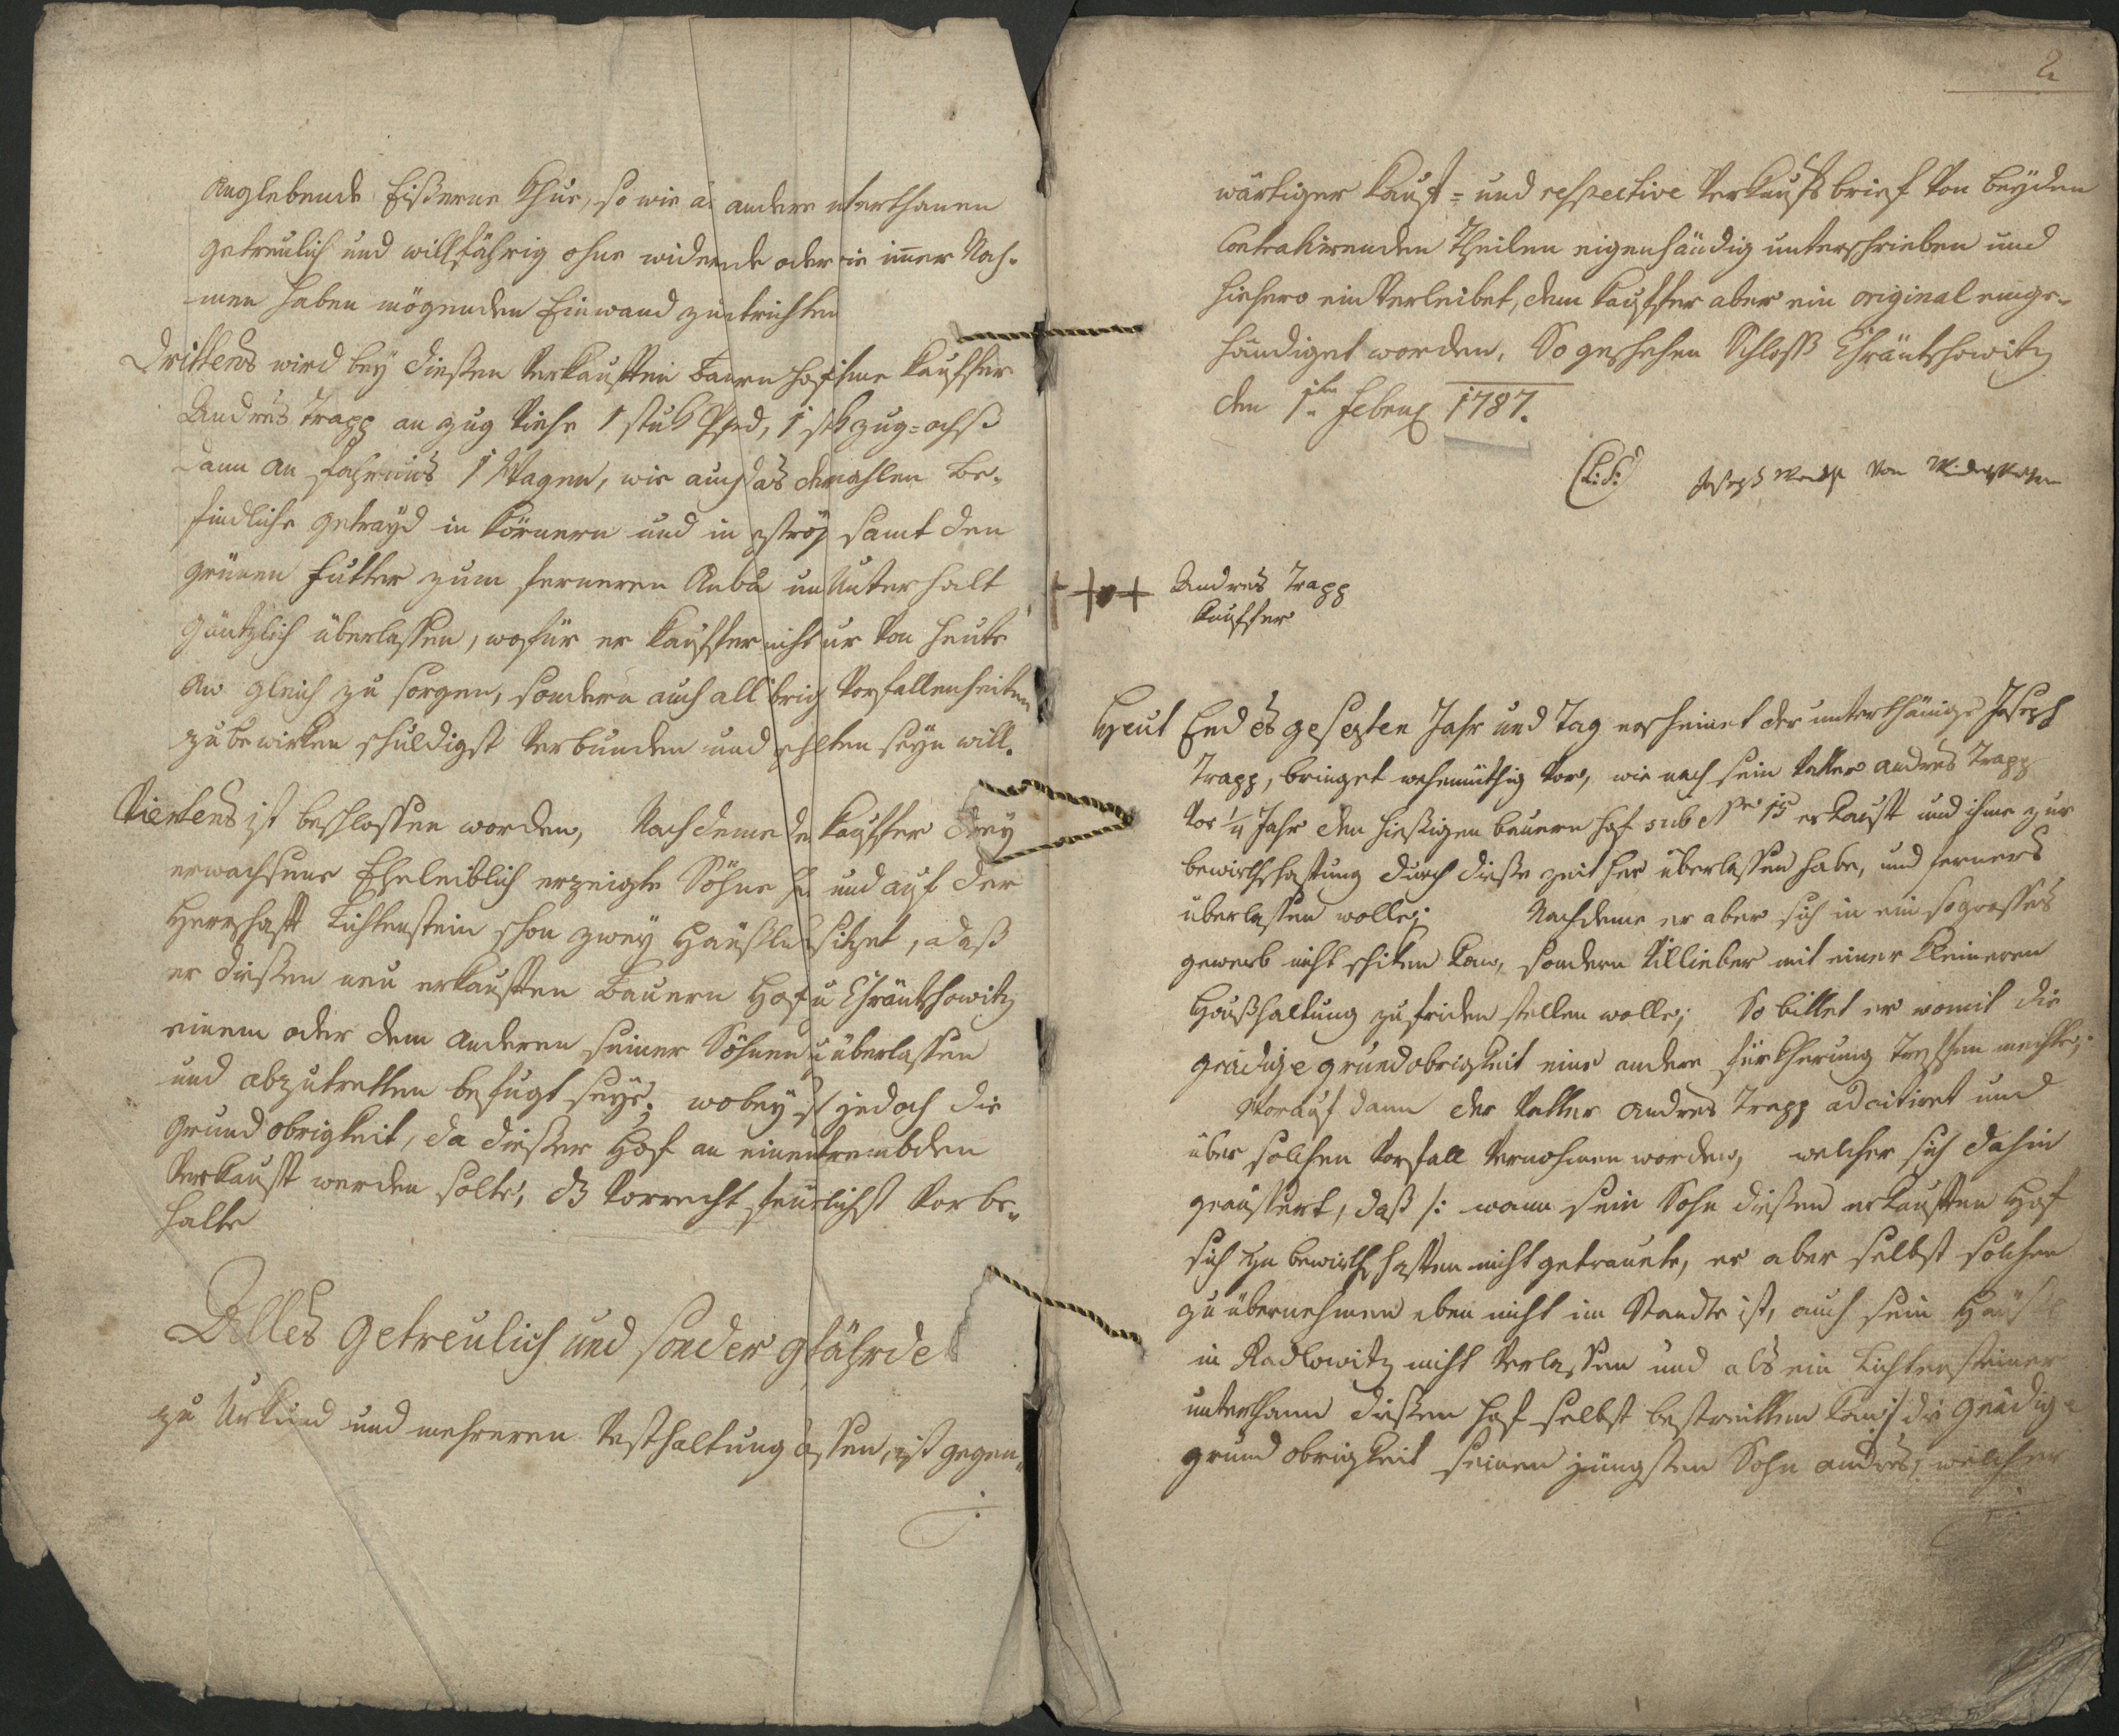 anglebende Eißerne Khue, so wie a andere nterthanen
getreulich und willfährig ohne widerrede oder ie imer Nah-
men haben mögenden Einwand zu ntrichten
Drittens wird bey dießen verkauften Baurn hof ihme Kauffer
Andres Trapp an zug Viehe 1 stuk Pferd, 1 stk zug-ochß
dann an fahrnus 1 Wagen, wie auch das dermahlen be-
findliche getrayd in Körnern und in stroh samt den
grünen Futter zum ferneren Anba un Unterhalt
gäntzlich überlassen, wofür er Kauffer nicht ur von heute
an gleich zu sorgen, sondern auch all übrig Vorfallenheiten
zu bewirken schuldigst verbunden und ehlten seyn will.
Viertens ist beschlossen worden, Nachdeme de Kauffer drey
erwachsene Eheleiblich erzeigte Söhne ha und auf der
Herrschaft Lichtenstein schon zwey Häußl sitzet, daß
er dießen neu erkauften Bauern Hof u Chräntschowitz
einem oder dem anderen seiner Söhnen u überlassen
und abzutretten befugt seye; wobey s jedoch die
Grundobrigkeit, da dießer Hof an einen frembden
verkauft werden solte, dz Vorrecht feuerlichst vor be-
halte
Alles getreulich und sonder gfährde
zu Urkund und mehreren Vesthaltung assen, ist gegen-
2
wärtiger Kauf- und respective Verkaufsbrief von beyden
Contrahirenden Theilen eigenhändig unterschrieben und
hiehero einverleibet, dem Kauffer aber ein original einge-
händiget worden. So geschehen Schloß Chräntschowitz
den 1ten Febru 1787.
(L: S:) Joseph von
+++ Andres Trapp
Kauffer
Heut End es gesezten Jahr und Tag erscheinet der unterthänige Joseph
Trapp, bringet wehemüthig vor, wie nach sein Vatter andres Trapp
vor 1/4 Jahr den hießigen bauern hof sub Nro 15 erkauft und ihme zur
bewirthschaftung durch dieße zeit her überlassen habe, und ferners
überlassen wolle; Nachdeme er aber sich in ein so grosses
gewerb nicht schiken kan, sondern Villieber mit einer Kleineren
Haußhaltung zufriden stellen wolle; So bittet er womit die
gnädige grundobrigkeit eine andere fürkherung treffen mechte;
Worauf dann der Vatter andres Trapp adcitiret und
über solchen Vorfall vernohmen worden, welcher sich dahin
geäussert, daß /: wann sein Sohn dießen erkauften Hof
sich zu bewirthschaften nicht getrauete, er aber selbst solchen
zu übernehmen eben nicht im Stande ist, auch sein Häußl
in Radlowitz nicht verlassen und als ein Lichtensteiner
unterthann dießen hof selbst bestreitten kan :/ die gnädige
grundobrigkeit seinen jüngsten Sohn andres, welcher